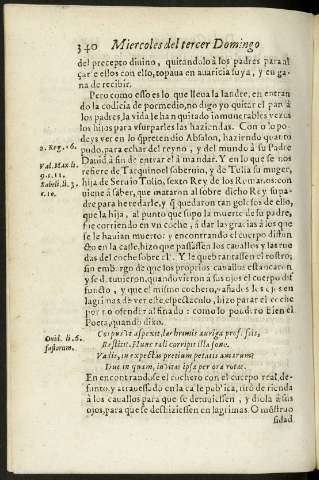 340 Miercoles del tercer Domingo
del precepto diuino, quitandolo à los padres para al
çarse ellos con ello, topaua en auaricia suya, y en ga
na de recibir.
Pero como esso es lo que lleua la landre, en entran
do la codicia de pormedio, no digo yo quitar el pan à
los padres, la vida le han quitado inumerables vezes
los hijos para vsurparles las haziendas. Con o lo po-
deys ver en lo q̃ pretendio Absalon, haziendo quanto
2. Reg. 16.
pudo, para echar del reyno, y del mundo à su Padre
Dauid à fin de entrar el à mandar. Y en lo que se nos
Val. Max. li.
9. c. 11.
refiere de Tarquino el soberuio, y de Tulia su muger,
Sabeli. li. 3.
c. 10.
hija de Seruio Tulio, sexto Rey de los Romanos: con
uiene à saber, que mataron al sobre dicho Rey su pa-
dre para heredarle, y q̃ quedaron tan golosos de ello,
que la hija, al punto que supo la muerte de su padre,
fue corriendo en vn coche, à dar las gracias à los que
se le auian muerto: y encontrando el cuerpo difun
cto en la calle, hizo que passassen los cauallos y las rue
das del coche sobre el. Y le quebrantassen el rostro,
sin embargo de que los proprios cauallos estancaron
y se detuuieron, quando vieron à sus ojos el cuerpo dif
functo, y que el mismo cochero, vañados los ojos en
lagrimas de ver este espectaculo, hizo parar el coche
por no ofender al finado: como lo ponderò bien el
Poeta, quando dixo.
Ouid. li. 6.
fastorum.
Corpus vt aspexit, lachrimis auriga profusis,
Restitit. Hunc tali corripit illa sono.
Vadis, an expectas pretium pietatis amarum?
Duc inquam, inuitas ipse per ora rotas.
En encontrandose el cochero con el cuerpo real, de-
funto, y atrauessado en la calle publica, tirò de rienda
à los cauallos para que se detuuiessen, y diola à sus
ojos, para que se deshiziessen en lagrimas. O mostruo
sidad